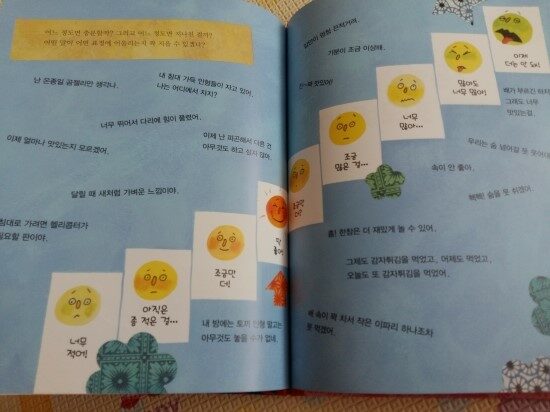 어느 정도면 충분할까? 그리고 어느 정도면 지나친 걸까?
어떤 말이 어떤 표정에 어울리는지 짝 지을 수 있겠니?
난 온종일 곰젤리만 생각나.
내 침대 가득 인형들이 자고 있어.
나는 어디에서 자지?
너무 뛰어서 다리에 힘이 풀렸어.
이제 얼마나 맛있는지 모르겠어.
이제 난 피곤해서 다른 건
아무것도 하고 싶지 않아.
달릴 때 새처럼 가벼운 느낌이야.
침대로 가려면 헬리콥터가
필요할 판이야.
내 방에는 토끼 인형 말고는
아무것도 놓을 수가 없네.
너무
적어!
아직은
좀 적은 걸...
조금만
더!
딱
좋아!
조금만
더!
조금
많은 걸...
너무
많아...
많아도
너무 많아!
이제
더는 안 돼!
기분이 조금 이상해.
배가 부르긴 하지만
그래도 너무
맛있는걸.
우리는 숨 넘어갈 듯 웃어
속이 안 좋아.
헉헉! 숨을 못 쉬겠어.
흠! 한참은 더 재밌게 놀 수 있어.
그제도 감자튀김을 먹었고, 어제도 먹었고,
오늘도 또 감자튀김을 먹었어.
배 속이 꽉 차서 작은 이파리 하나조차
못 먹겠어.